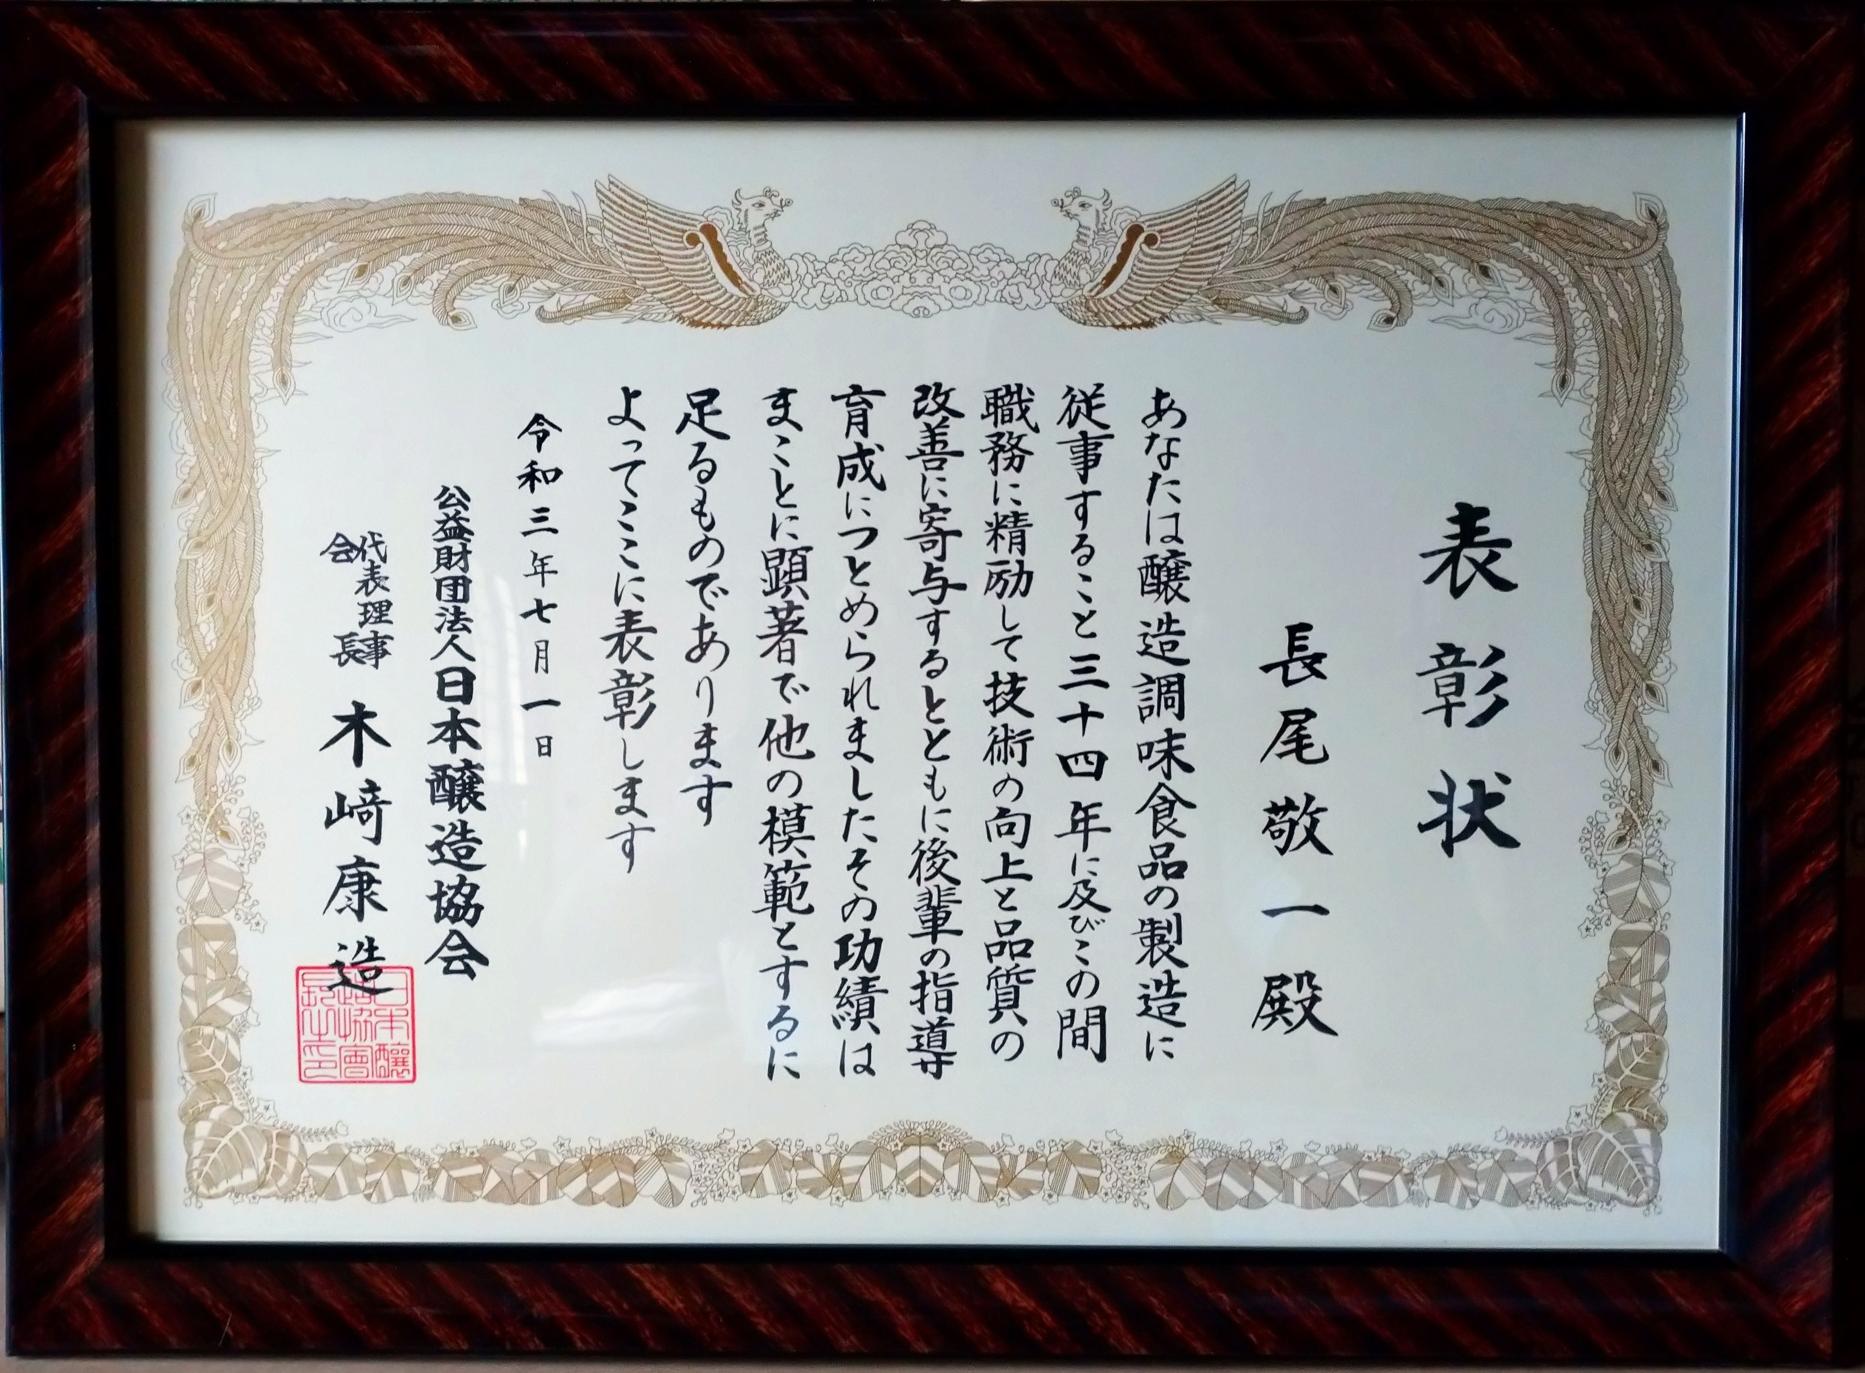 表彰状
長尾敬一殿
あなたは醸造調味食品の製造に
従事すること三十四年に及びこの間
職務に精励して技術の向上と品質の
改善に寄与するとともに後輩の指導
育成につとめられましたその功績は
まことに顕著で他の模範とするに
足るものであります
よってここに表彰します
令和三年七月一日
公益財団法人日本醸造協会
代表理事
会長
木﨑康造
日本醸
造協會